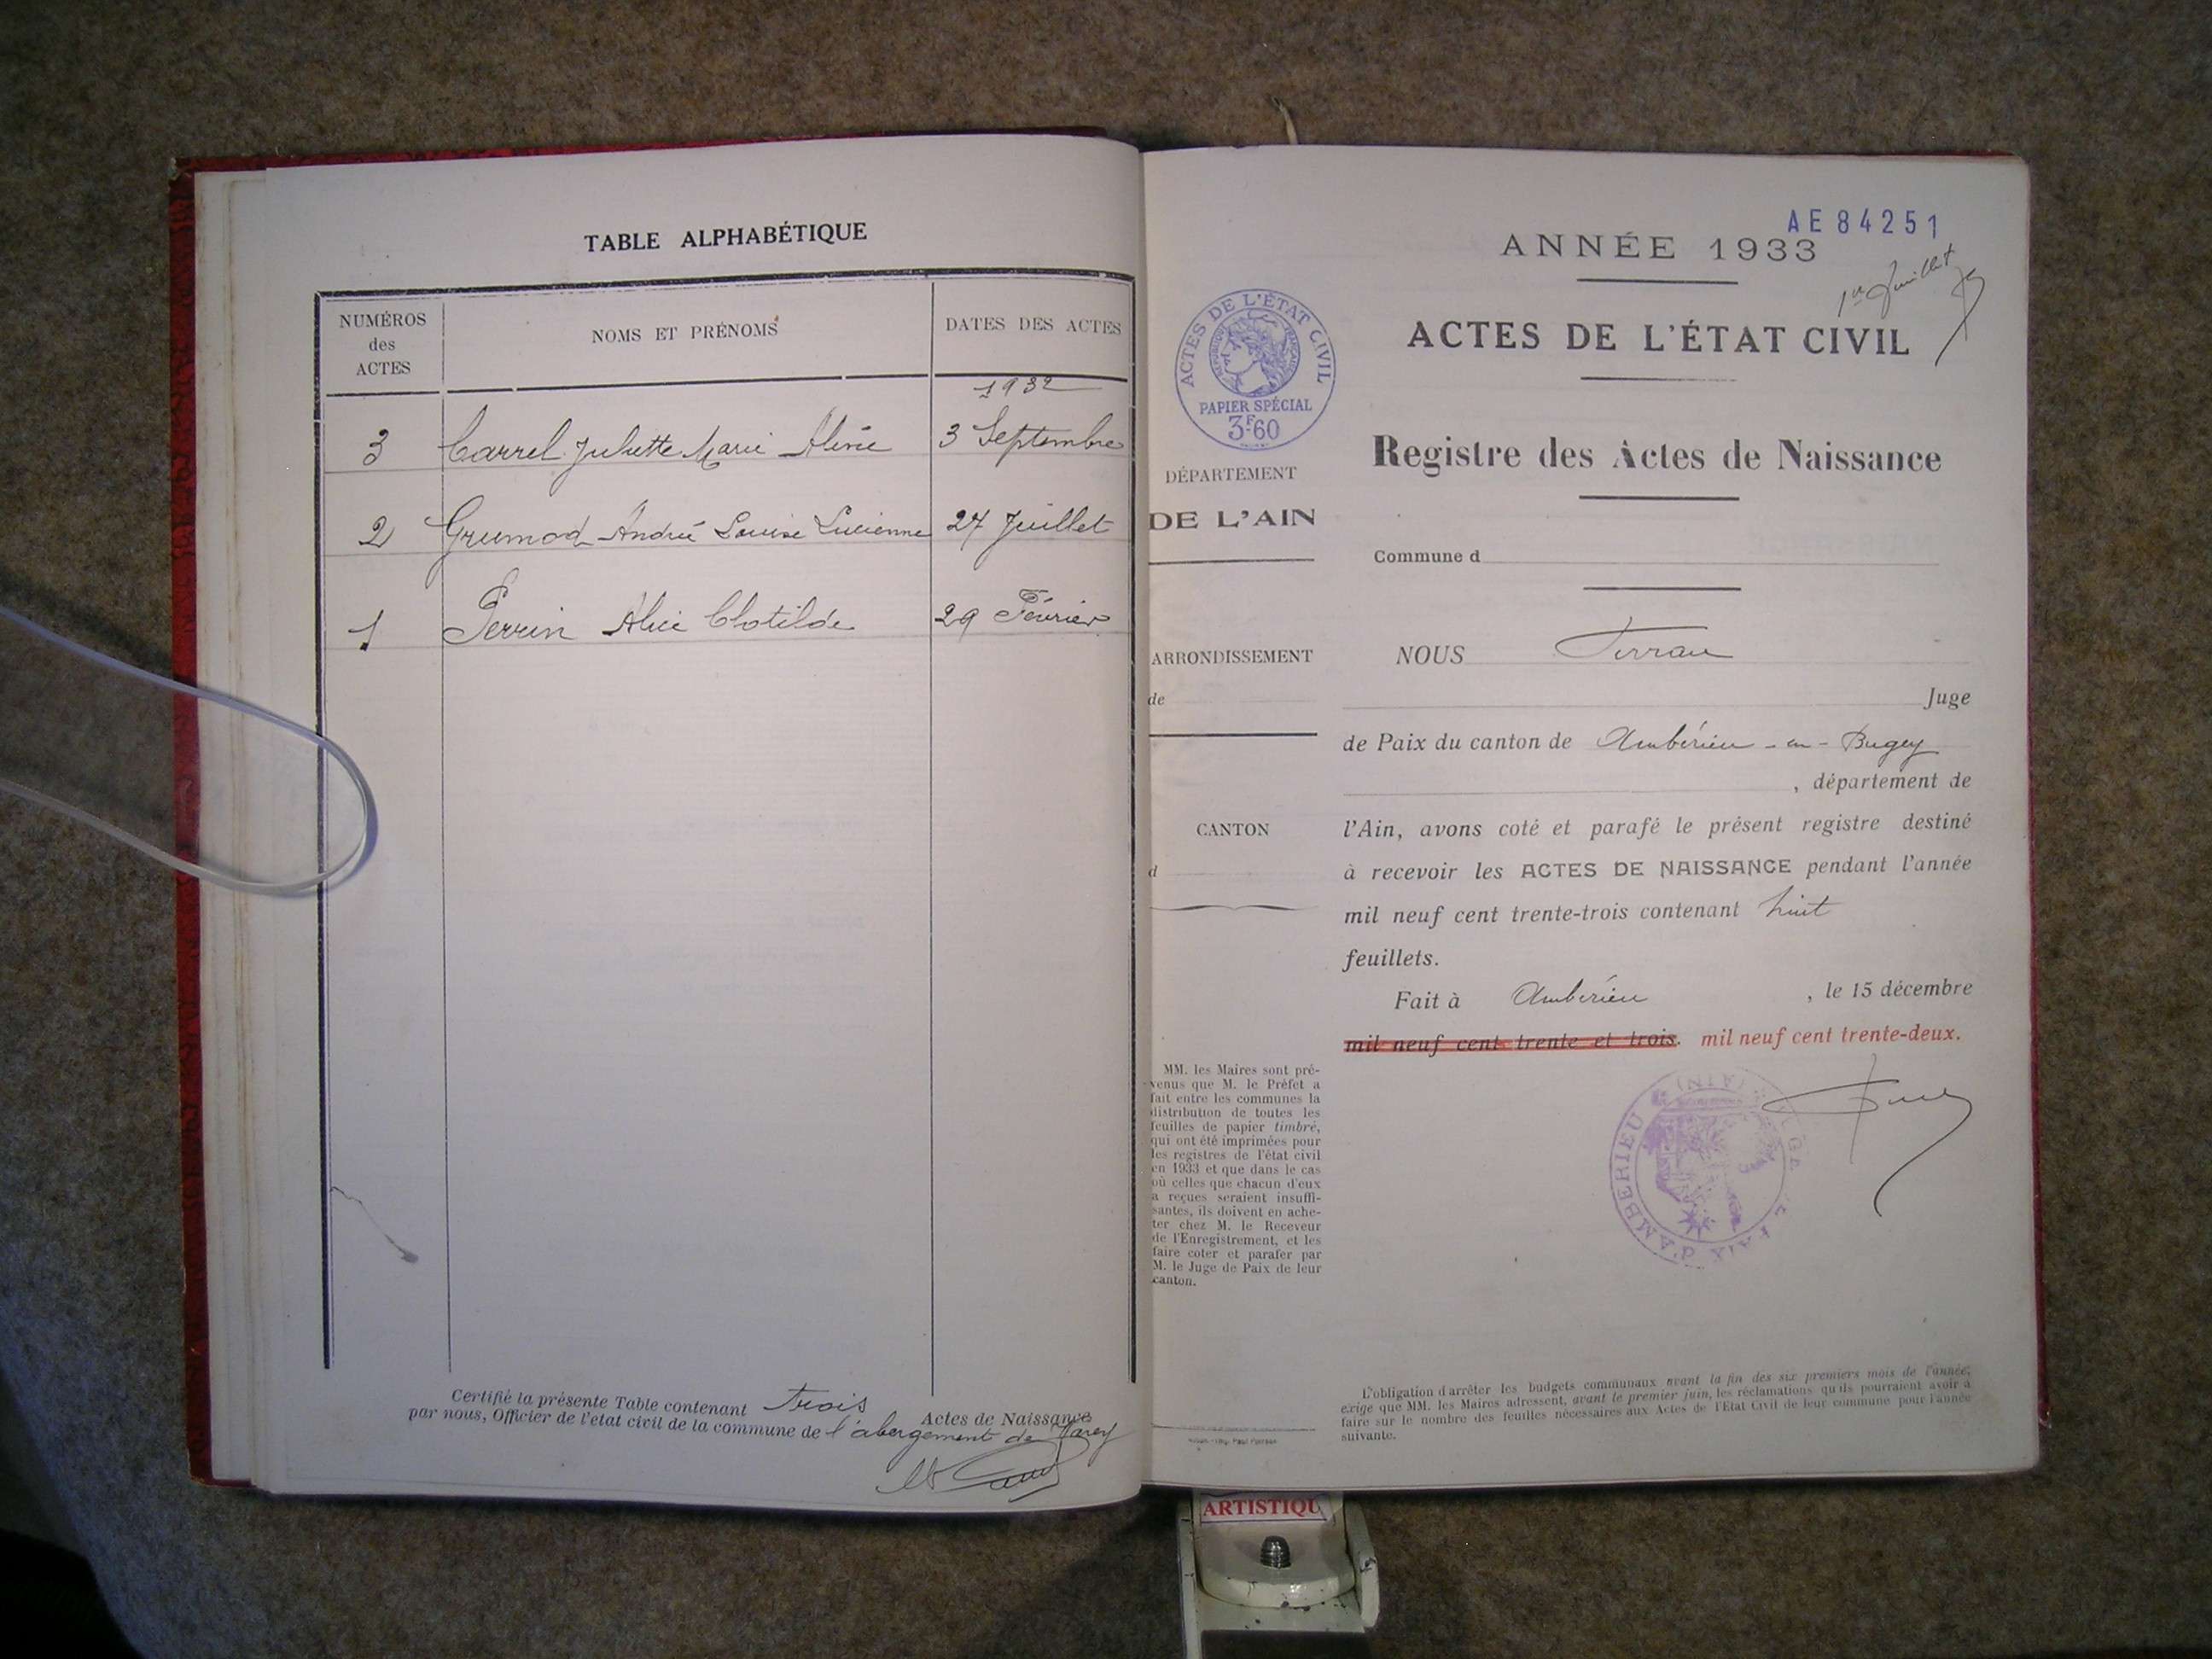 TABLE ALPHABÉTIQUE
NUMÉROS
des
ACTES
NOMS ET PRÉNOMS
DATES DES ACTES
1932
3 Carrel Juliette Marie 3 Septembre
2 Grumod André Louise Lucienne 27 Juillet
1 Perrin Alice Clotilde 29 Février
Certifié la présente Table contenant trois Actes de Naissance
par nous, Officier de l'état civil de la commune de l'abergement de Varey
AE 84251
ANNÉE 1933
1er Juillet
ACTES DE L'ÉTAT CIVIL
Registre des Actes de Naissance
Commune d
NOUS
Juge
de Paix du canton de Ambérieu-en-Bugey
, département de
l'Ain, avons coté et parafé le présent registre destiné
à recevoir les ACTES DE NAISSANCE pendant l'année
mil neuf cent trente-trois contenant huit
feuillets.
Fait à Ambérieu , le 15 décembre
mil neuf cent trente et trois. mil neuf cent trente-deux.
L'obligation d'arrêter les budgets communaux avant la fin des six premiers mois de l'année,
exige que MM. les Maires adressent, avant le premier juin, les réclamations qu'ils pourraient avoir à
faire sur le nombre des feuilles nécessaires aux Actes de l'Etat Civil de leur commune pour l'année
suivante.
ACTES DE L'ÉTAT CIVIL
RÉPUBLIQUE FRANÇAISE
PAPIER SPÉCIAL
3F60
DÉPARTEMENT
DE L'AIN
ARRONDISSEMENT
de
CANTON
d
MM. les Maires sont pré-
venus que M. le Préfet a
fait entre les communes la
distribution de toutes les
feuilles de papier timbré,
qui ont été imprimées pour
les registres de l'état civil
en 1933 et que dans le cas
où celles que chacun d'eux
a reçues seraient insuffi-
santes, ils doivent en ache-
ter chez M. le Receveur
de l'Enregistrement, et les
faire coter et parafer par
M. le Juge de Paix de leur
canton.
D'AMBERIEU (AIN)
ARTISTIQU